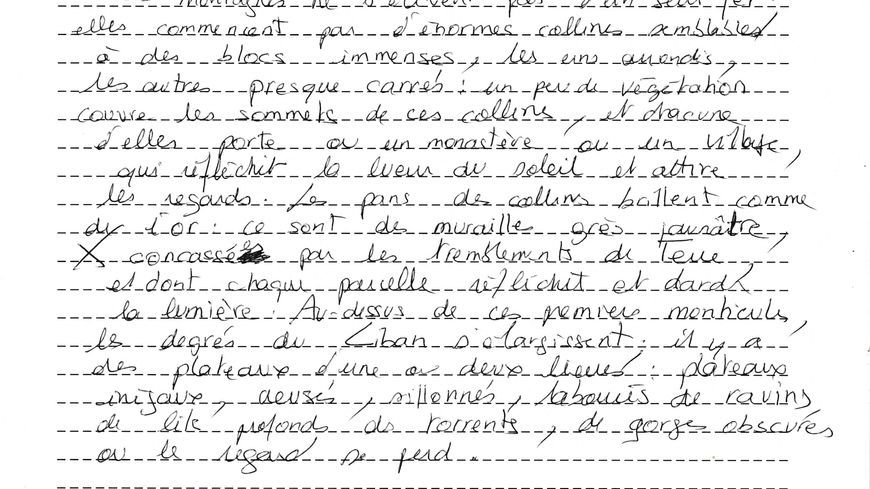 montagnes ne s'élèvent pas d'un seul jet :
elles commencent par d'énormes collines semblables
à des blocs immenses, les uns arrondis,
les autres presque carrés : un peu de végétation
couvre les sommets de ces collines, et chacune
d'elles porte ou un monastère ou un village,
qui réfléchit la lueur du soleil et attire
les regards. Les pans des collines brillent comme
de l'or : ce sont des murailles grès jaunâtre,
concassées par les tremblements de Terre,
et dont chaque parcelle réfléchit et darde
la lumière. Au-dessus de ces premiers monticules,
les degrés du Liban s'élargissent : il y a
des plateaux d'une ou deux lieues : plateaux
inégaux, creusés, sillonnés, labourés de ravins,
de lits profonds de torrents, de gorges obscures
où le regard se perd.